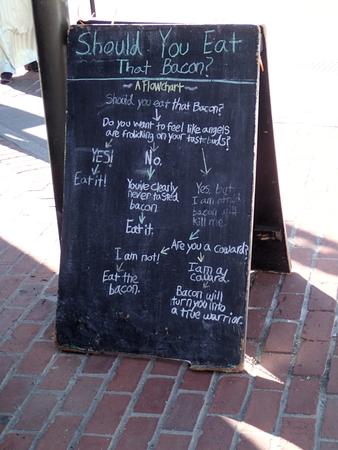 Should You Eat
That Bacon?
~A Flowchart~
Should you eat that Bacon?
Do you want to feel like angels
are frolicking on your tastebuds?
YES!
Eat it!
No.
You've clearly
never tasted
bacon
Eat it.
Yes, but
I am afraid
bacon will
kill me.
Are you a coward?
I am not!
Eat the
bacon.
I am a
coward.
Bacon will
turn you into
a true warrior.